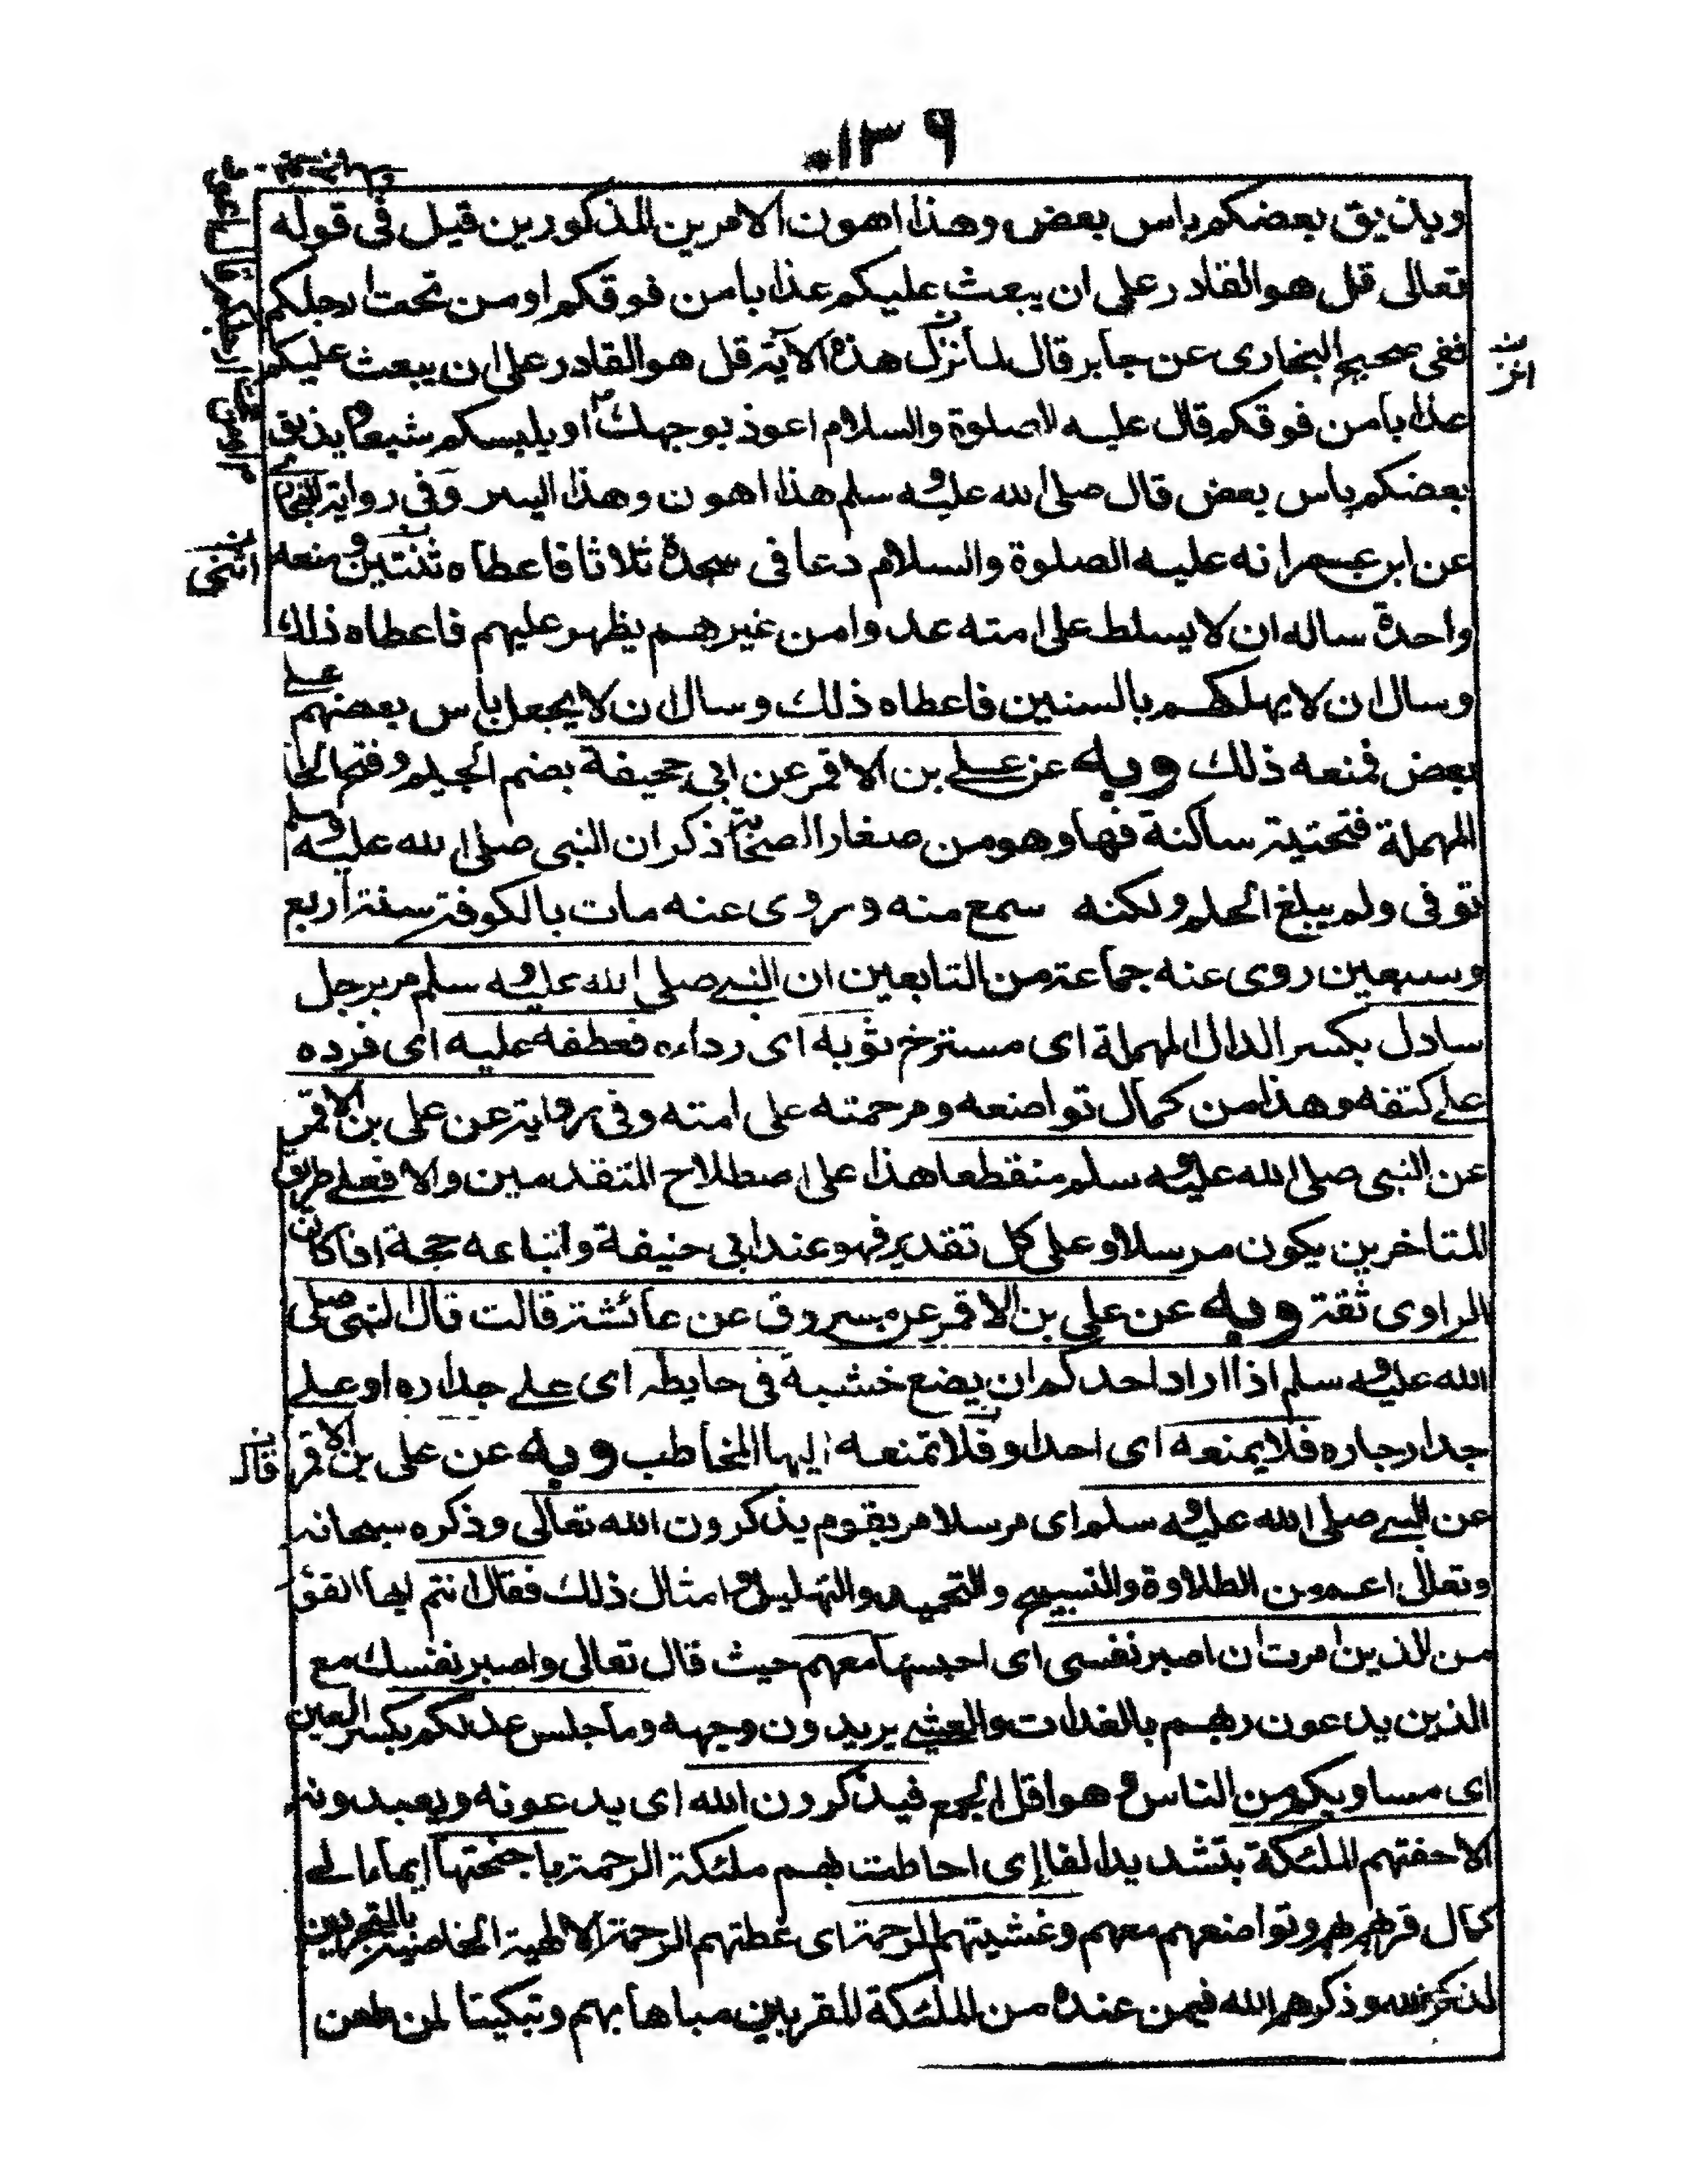 ١٣٩
ويذيق بعضكم باس بعض وهذا اهون الامرين المذكورين قيل في قوله
تعالى قل هو القادر على ان يبعث عليكم عذابا من فوقكم او من تحت ارجلكم
ففي صحيح البخارى عن جابر قال لما نزل هذه الآية قل هو القادر على ان يبعث عليكم
عذابا من فوقكم قال عليه الصلوة والسلام اعوذ بوجهك او يلبسكم شيعا ويذيق
بعضكم باس بعض قال صلى الله عليه وسلم هذا اهون وهذا ايسر وفى رواية
عن ابن عمر انه عليه الصلوة والسلام دعا فى سجدة ثلاثا فاعطاه ثنتين ومنعه
واحدة ساله ان لا يسلط على امته عدوا من غيرهم يظهر عليهم فاعطاه ذلك
وسال ان لا يهلكهم بالسنين فاعطاه ذلك وسال ان لا يجعل بأس بعضهم على
بعض فمنعه ذلك وبه عن على بن الاقمر عن ابي جحيفة بضم الجيم وفتح الحا
المهملة فتحتية ساكنة ففا وهو من صغار الصحابة ذكر ان النبى صلى الله عليه وسلم
توفى ولم يبلغ الحلم ولكنه سمع منه وروى عنه مات بالكوفة سنة اربع
وسبعين روى عنه جماعة من التابعين ان النبي صلى الله عليه وسلم مر برجل
سادل بكسر الدال المهملة اى مسترخ ثوبه اى رداءه فعطفه عليه اى فرده
على كتفه وهذا من كمال تواضعه ومرحمته على امته وفى رواية عن على بن الاقمر
عن النبى صلى الله عليه وسلم منقطعا هذا على اصطلاح المتقدمين والا فعلى طريق
المتاخرين يكون مرسلا وعلى كل تقدير فهو عند ابى حنيفة واتباعه حجة اذا كان
الراوى ثقة وبه عن على بن الاقمر عن مسروق عن عائشة قالت قال النبى صلى
الله عليه وسلم اذا اراد احدكم ان يضع خشبة فى حايطه اى على جداره او على
جدار جاره فلا يمنعه اى احدا و فلا تمنعه ايها المخاطب وبه عن على بن الاقمر
عن النبي صلى الله عليه وسلم اى مرسلا مر بقوم يذكرون الله تعالى وذكره سبحانه
وتعالى اعم من الطلاوة والتسبيح والتحميد والتهليل وامثال ذلك فقال انتم ايها القوم
من الذين امرت ان اصبر نفسى اى احبسها معهم حيث قال تعالى واصبر نفسك مع
الذين يدعون ربهم بالغدات والعشي يريدون وجهه وما جلس عدلكم بكسر العين
اى مساويكم من الناس وهو اقل الجمع فيذكرون الله اى يدعونه ويعبدونه
الا حفتهم الملئكة بتشديد الفا اى احاطت بهم ملئكة الرحمة باجنحتها ايماء الى
كمال قربهم وتواضعهم معهم وغشيتهم الرحمة اى غطتهم الرحمة الالهية الخاصية
لذكر الله وذكرهم الله فيمن عنده من الملئكة المقربين مباها بهم وتبكيتا لمن طعن
قال